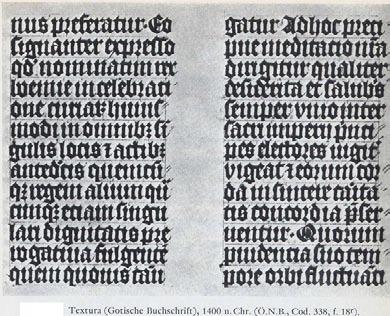 nus preferatur · Eo
signanter expresso
qd nominatim ter
in celebrati
one curiarum huius
modi in omnibus si
gulis locis et actibus
antedictis quemcumque
regem alium qui
cumque etiam singu
lari dignitatis pre
rogatiua fulgente
quem quouis tam
gatur Adhoc preci
pue meditatio nostra
dirigitur qualiter
desiderata et salubris
semper viuo inter
sacri imperii princi
pes electores iugiter
vigeat et eorum cor
da in sincere carita
tis concordia preser
uentur · Quorum
prudentia suo tem
pore orbi fluctuati
Textura (Gotische Buchschrift), 1400 n. Chr. (Ö.N.B., Cod. 338, f. 18r).